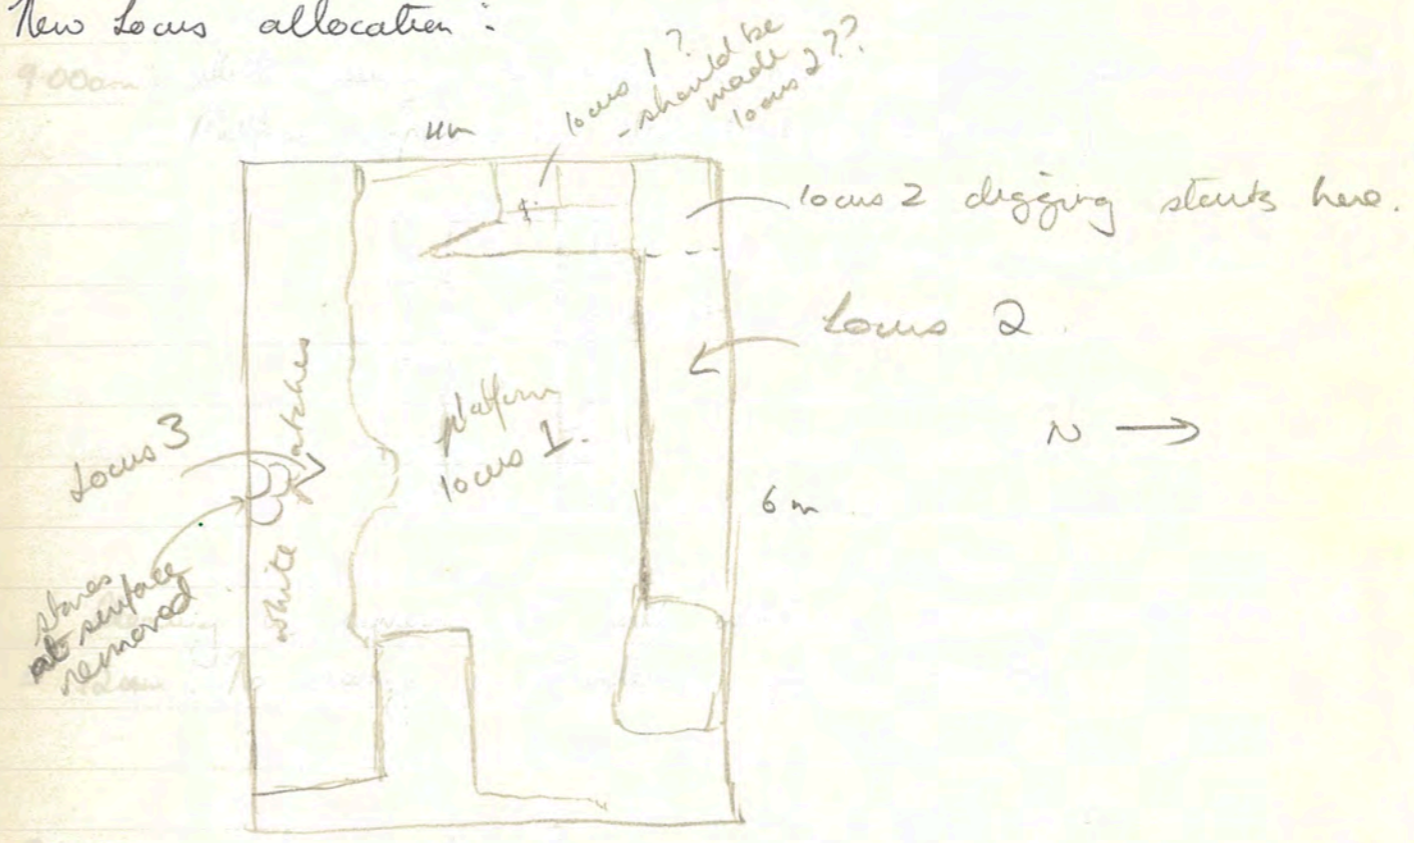 New Locus allocation :
9:00am
4m
locus 1?
- should be
made
locus 2??
locus 2 digging starts here.
Locus 2.
platform
locus 1.
N
Locus 3
white patches
6m
stones
at surface
removed